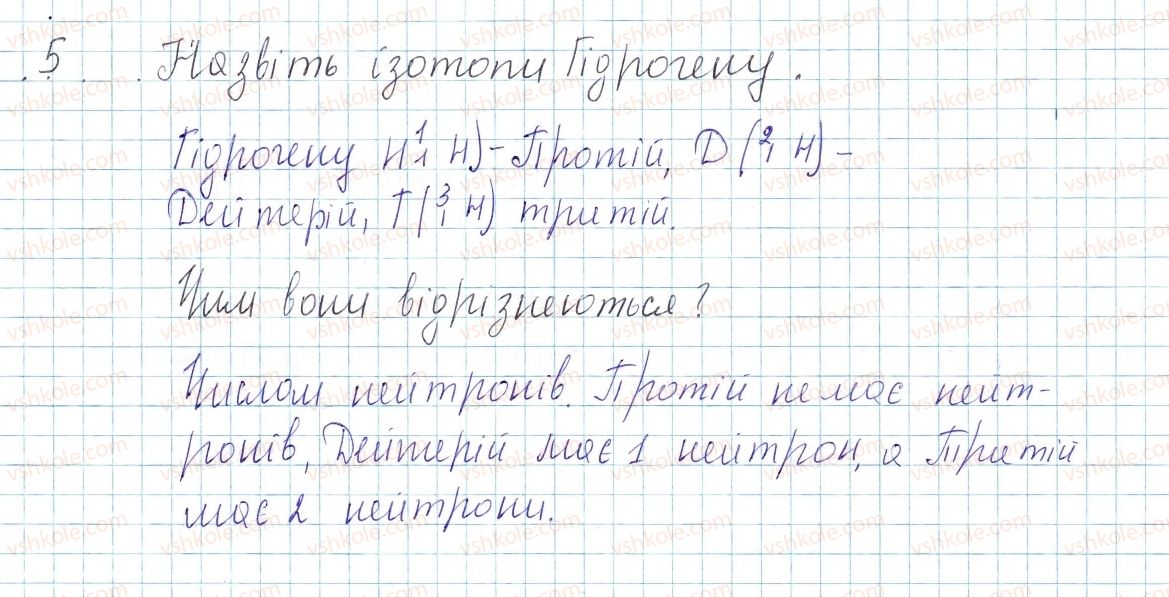 5. Назвіть ізотопи Гідрогену.
Гідрогену H(¹₁ H) - Протій, D (²₁ H) -
Дейтерій, T (³₁ H) тритій.
Чим вони відрізнеються?
Числом нейтронів. Протій не має нейт-
ронів, Дейтерій має 1 нейтрон, а Тритій
має 2 нейтрони.
vshkole.com